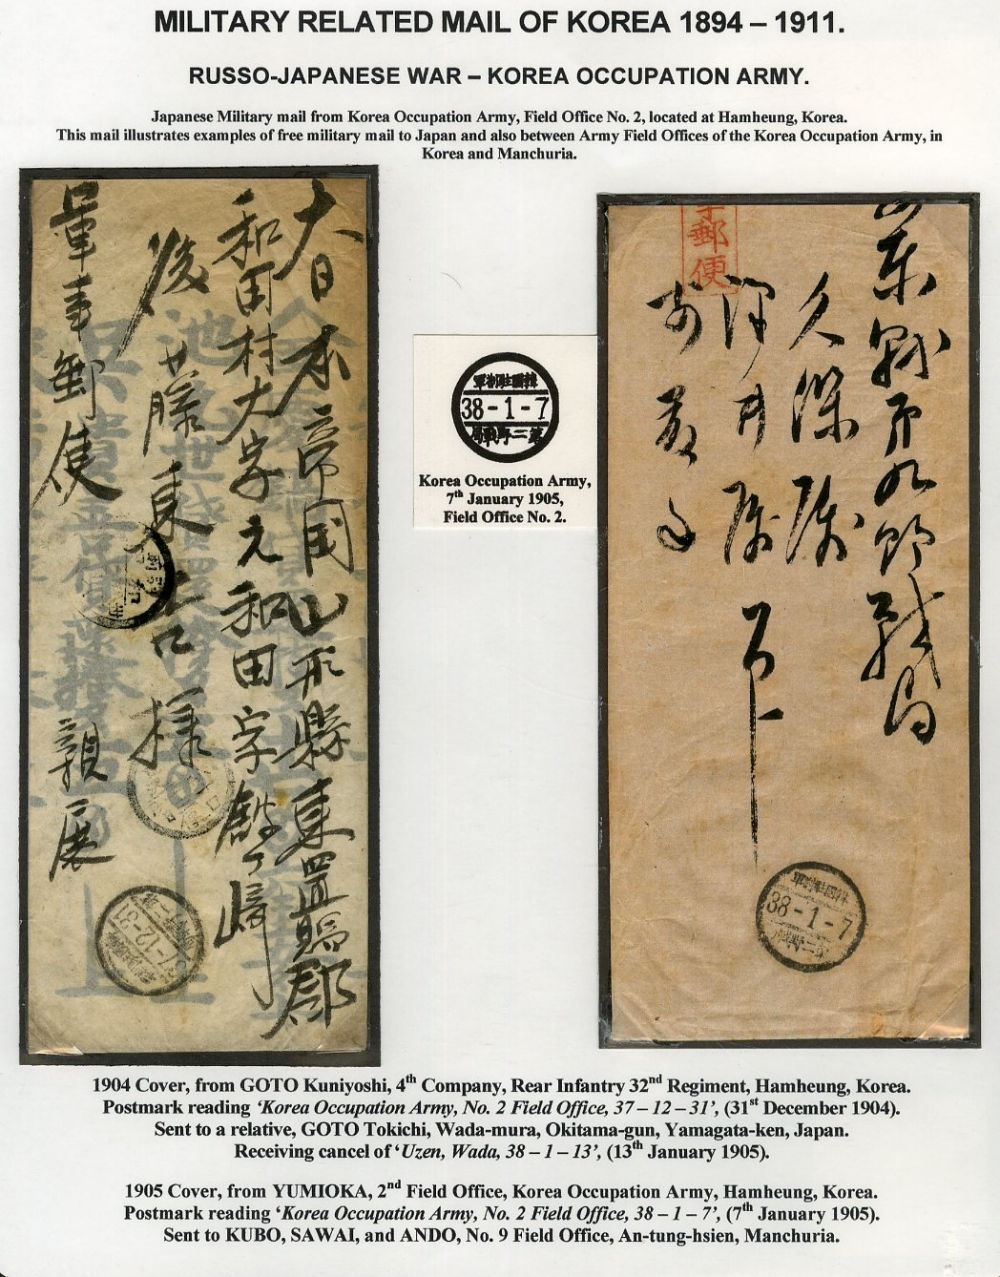 MILITARY RELATED MAIL OF KOREA 1894 – 1911.
RUSSO-JAPANESE WAR – KOREA OCCUPATION ARMY.
Japanese Military mail from Korea Occupation Army, Field Office No. 2, located at Hamheung, Korea.
This mail illustrates examples of free military mail to Japan and also between Army Field Offices of the Korea Occupation Army, in
Korea and Manchuria.
大日本帝国山形縣東置賜郡
和田村大字元和田字
後藤東吉様
軍事郵便 親展
韓國駐剳軍
38-1-7
第二野戰局
Korea Occupation Army,
7th January 1905,
Field Office No. 2.
郵便
第九野戦局
久保
澤井
韓國駐剳軍
38-1-7
第二野戰局
1904 Cover, from GOTO Kuniyoshi, 4th Company, Rear Infantry 32nd Regiment, Hamheung, Korea.
Postmark reading ‘Korea Occupation Army, No. 2 Field Office, 37 – 12 – 31’, (31st December 1904).
Sent to a relative, GOTO Tokichi, Wada-mura, Okitama-gun, Yamagata-ken, Japan.
Receiving cancel of ‘Uzen, Wada, 38 – 1 – 13’, (13th January 1905).
1905 Cover, from YUMIOKA, 2nd Field Office, Korea Occupation Army, Hamheung, Korea.
Postmark reading ‘Korea Occupation Army, No. 2 Field Office, 38 – 1 – 7’, (7th January 1905).
Sent to KUBO, SAWAI, and ANDO, No. 9 Field Office, An-tung-hsien, Manchuria.